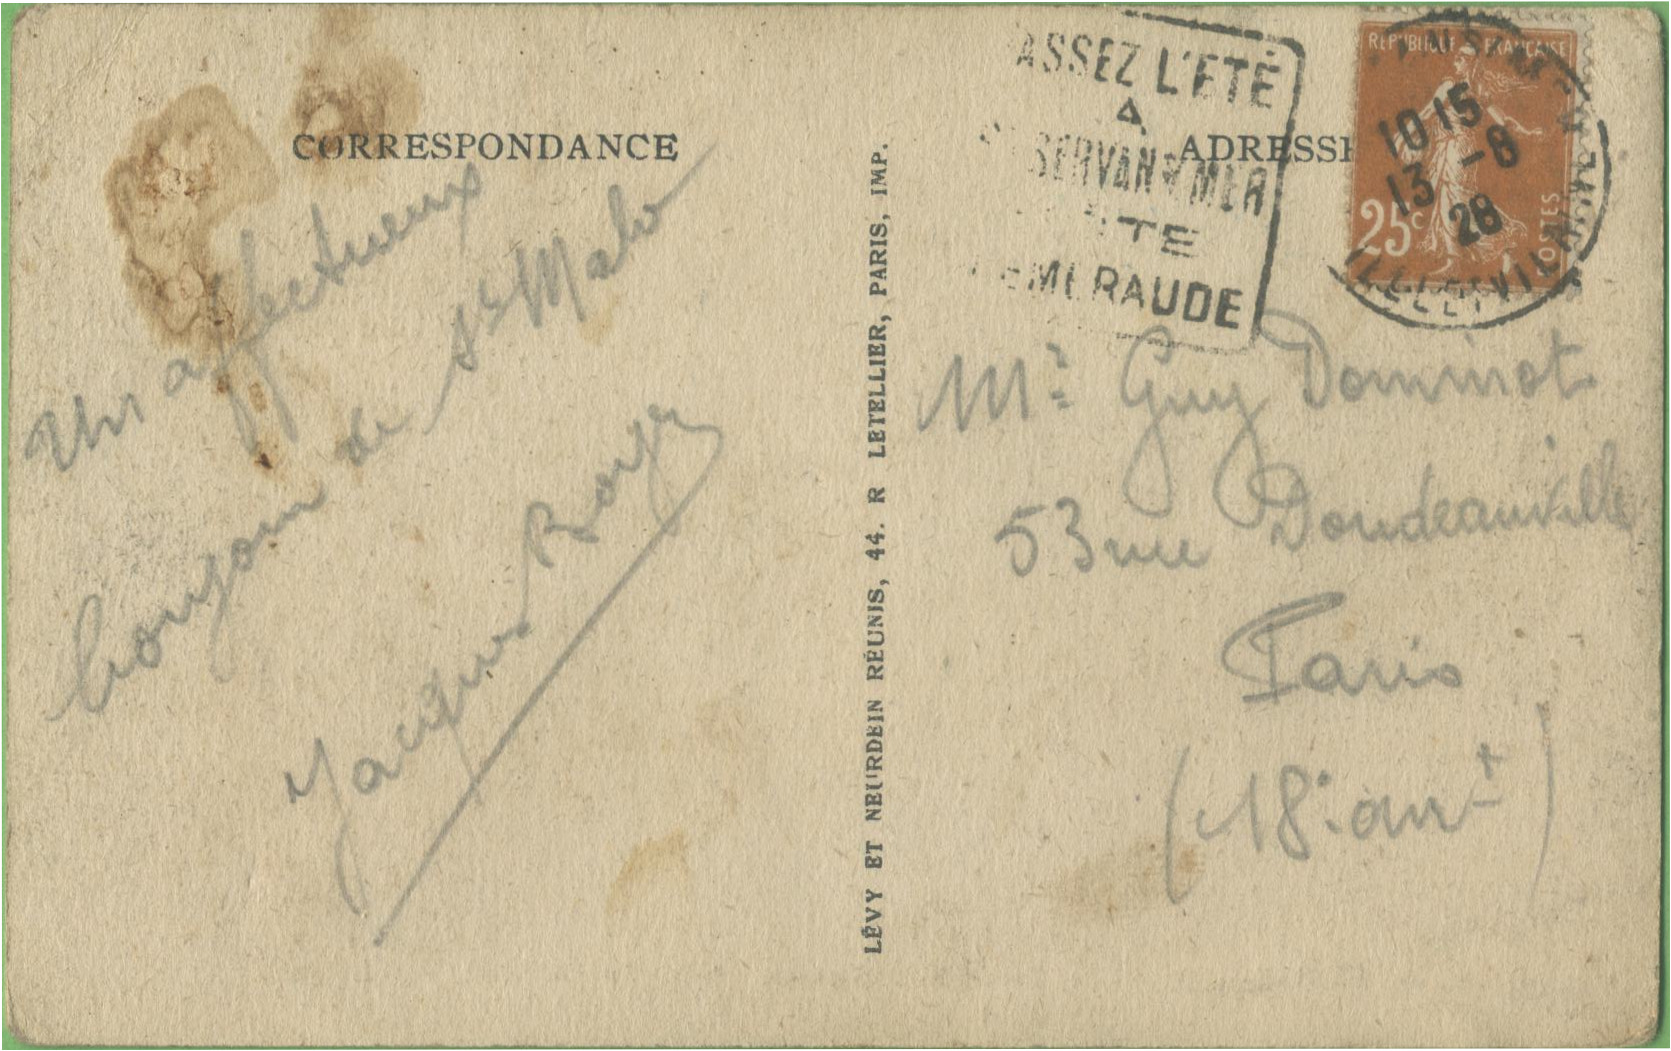 CORRESPONDANCE
Un affectueux
bonjour de St Malo
Jacques Boyer
LÉVY ET NEURDEIN RÉUNIS, 44. R LETELLIER, PARIS, IMP.
ASSEZ L'ÉTÉ
A
SERVAN S/MER
EMERAUDE
ADRESSE
REPUBLIQUE FRANCAISE
25c
POSTES
10 15
13 - 8
28
ILLE ET VILAINE
Mr Guy Dominot
53 rue Doudeauville
Paris
(18e arrt)